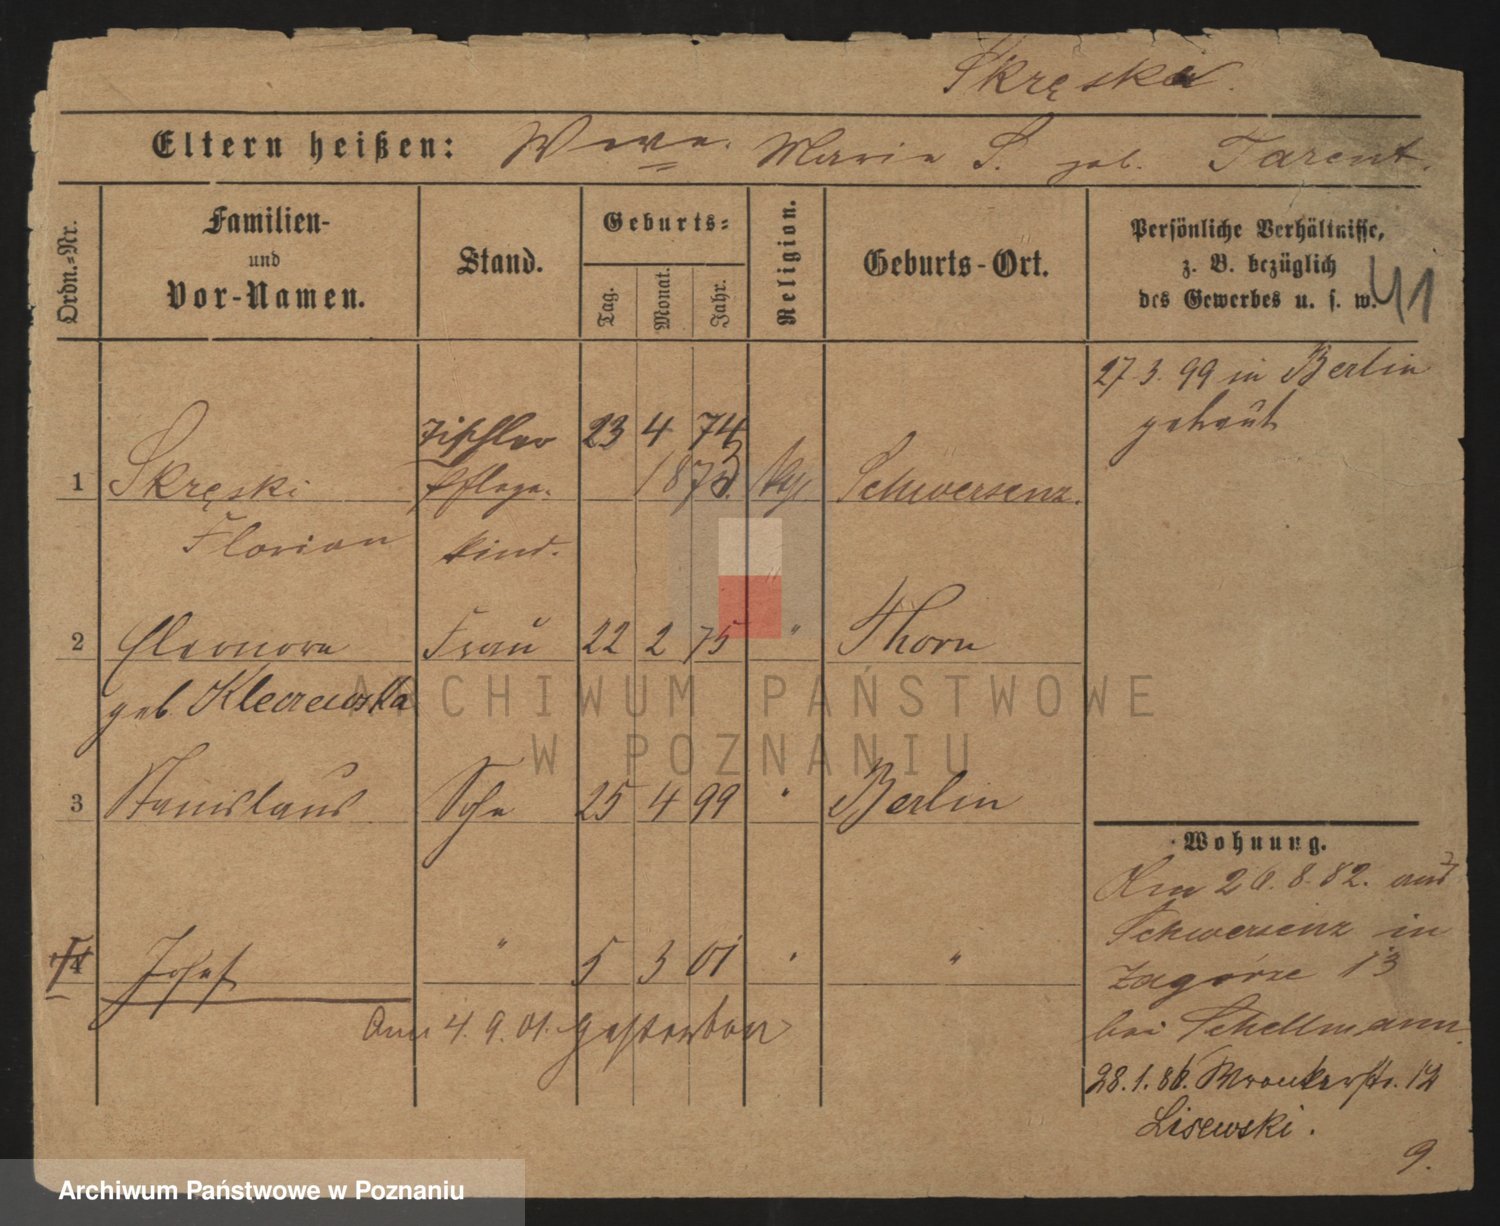 Skręska.
Eltern heißen: Wwe. Maria S. geb. Tarent.
Ordn.-Nr.
Familien-
und
Vor-Namen.
Stand.
Geburts-
Tag. Monat. Jahr.
Religion.
Geburts-Ort.
Persönliche Verhältnisse,
z. B. bezüglich
des Gewerbes u. s. w.
41
27. 3. 99 in Berlin
getraut
Tischler 23 4 74
1 Skręski Pflege- 1873. Schwersenz.
Florian kind.
2 Eleonore Frau 22 2 75 " Thorn
geb. Kleczewska
ARCHIWUM PAŃSTWOWE
W POZNANIU
3 Stanislaus Sohn 25 4 99 " Berlin
4 Josef " 5 3 01 " "
Am 4. 9. 01. gestorben
Wohnung.
Am 20. 8. 82. aus
Schwersenz in
Zagórze 13
bei Schellmann.
28. 1. 86. Wronkerstr. 12
Lisewski.
9.
Archiwum Państwowe w Poznaniu